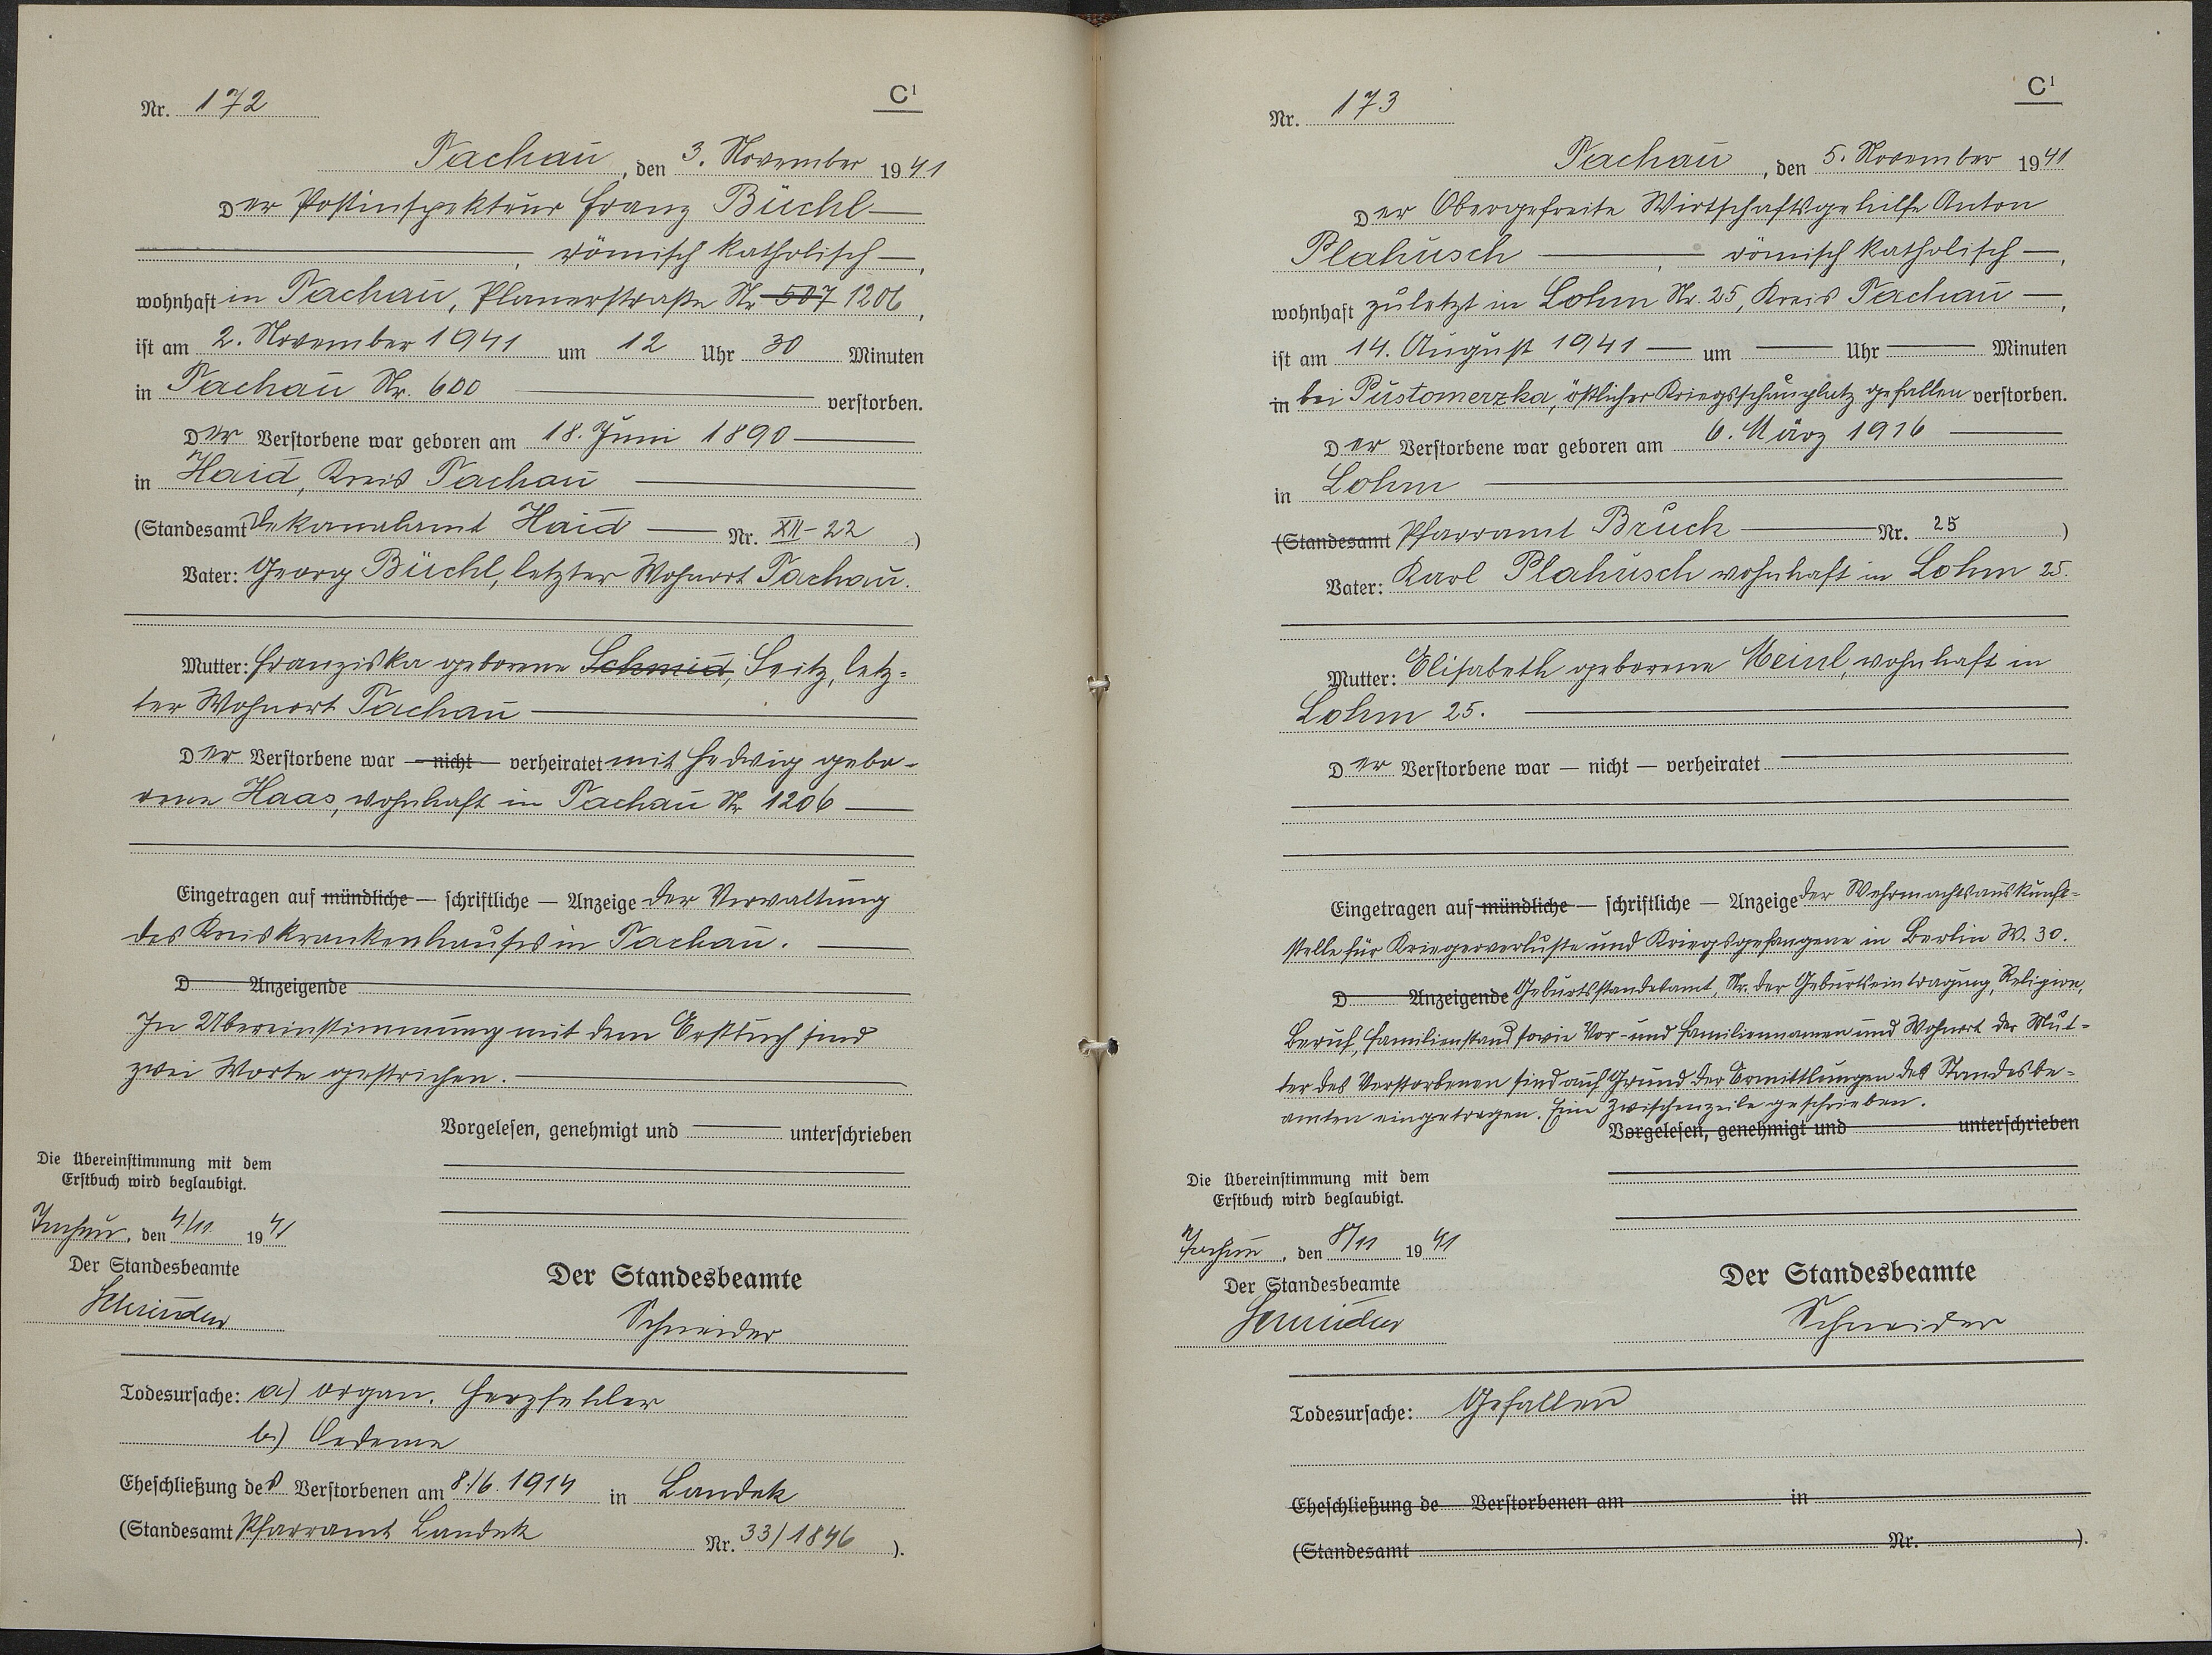 Nr. 172
C¹
Tachau, den 3. November 1941
Der Postinspekteur Franz Büchl
römisch katholisch,
wohnhaft in Tachau, Planerstraße Nr 507 1206,
ist am 2. November 1941 um 12 Uhr 30 Minuten
in Tachau Nr. 600 verstorben.
Der Verstorbene war geboren am 18. Juni 1890
in Haid, Kreis Tachau
(Standesamt Dekanalamt Haid Nr. XII-22)
Vater: Georg Büchl, letzter Wohnort Tachau.
Mutter: Franziska geborene Schmid, Seitz, letz=
ter Wohnort Tachau
Der Verstorbene war — nicht — verheiratet mit Hedwig gebo-
rene Haas, wohnhaft in Tachau Nr 1206
Eingetragen auf mündliche — schriftliche — Anzeige der Verwaltung
des Kreiskrankenhauses in Tachau.
D Anzeigende
In Übereinstimmung mit dem Erstbuch sind
zwei Worte gestrichen.
Vorgelesen, genehmigt und unterschrieben
Die Übereinstimmung mit dem
Erstbuch wird beglaubigt.
Tachau, den 4/11 1941
Der Standesbeamte
Schneider
Der Standesbeamte
Schneider
Todesursache: a) organ. Herzfehler
b) Oedeme
Eheschließung des Verstorbenen am 8./6. 1914 in Landek
(Standesamt Pfarramt Landek Nr. 33/1846).
Nr. 173
C¹
Tachau, den 5. November 1941
Der Obergefreite Wirtschaftsgehilfe Anton
Plahusch, römisch katholisch,
wohnhaft zuletzt in Lohm Nr. 25, Kreis Tachau,
ist am 14. August 1941 um Uhr Minuten
in bei Pustomerzka, östlicher Kriegsschauplatz gefallen verstorben.
Der Verstorbene war geboren am 6. März 1916
in Lohm
(Standesamt Pfarramt Bruck Nr. 25)
Vater: Karl Plahusch wohnhaft in Lohm 25.
Mutter: Elisabeth geborene Meinl, wohnhaft in
Lohm 25.
Der Verstorbene war — nicht — verheiratet
Eingetragen auf mündliche — schriftliche — Anzeige der Wehrmachtsauskunft-
stelle für Kriegerverluste und Kriegsgefangene in Berlin W. 30.
D Anzeigende Geburtsstandesamt, Nr. der Geburtseintragung, Religion,
Beruf, Familienstand sowie Vor- und Familiennamen und Wohnort der Mut-
ter des Verstorbenen sind auf Grund der Ermittlungen des Standesbe-
amten eingetragen. Eine Zwischenzeile geschrieben.
Vorgelesen, genehmigt und unterschrieben
Die Übereinstimmung mit dem
Erstbuch wird beglaubigt.
Tachau, den 8/11 1941
Der Standesbeamte
Schneider
Der Standesbeamte
Schneider
Todesursache: Gefallen
Eheschließung de Verstorbenen am in
(Standesamt Nr. ).